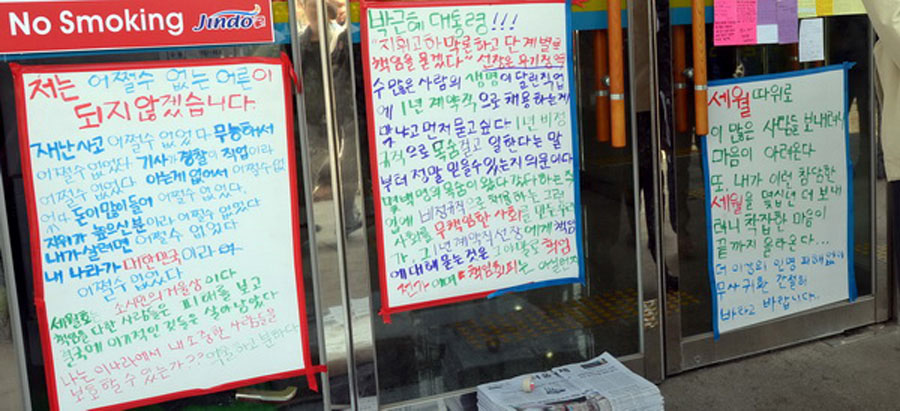 No Smoking
Jindo군
저는 어쩔수 없는 어른이
되지 않겠습니다.
재난사고 어쩔수 없었다 무능해서
어쩔수없었다. 기사가 경찰이 직업이라
어쩔수 없었다 아는게 없어서 어쩔수없
었다. 돈이 많이들어 어쩔수 없었다.
지위가 높으신 분이라 어쩔수 없었다
내가살려면 어쩔수 없었다
내 나라가 대한민국이라 어
어쩔수 없었다
세월호는 소시민의 거울상이다
책임을 다한 사람들은 피해를 보고
결국에 이기적인 것들은 살아남았다
나는 이나라에서 내 소중한 사람들을
보호할수 있는가??
박근혜 대통령!!!
"지휘고하 막론하고 단계별로
책임을 묻겠다" 선장은 무기징역
수 많은 사람의 생명이 달린직업
에 1년 계약직으로 채용하는게
맞냐고 먼저 묻고싶다 1년 비정
규직으로 목숨걸고 일한다는 말
부터 정말 믿을수있는지 의문이다
몇백명의 목숨이 왔다갔다하는 직
업에 비정규직으로 채용하는 그런
사회를 무책임한 사회를 믿는
가. 1년 계약직 선장에게 책임
에 대해 묻는것은 책임
전가
세월 따위로
이 많은 사람들 보내려니
마음이 아려온다
또, 내가 이런 참담한
세월을 몇십년 더 보내
려니 착잡한 마음이
끝까지 올라온다...
더 이상의 인명 피해없이
무사귀환 간절히
바라고 바랍니다.